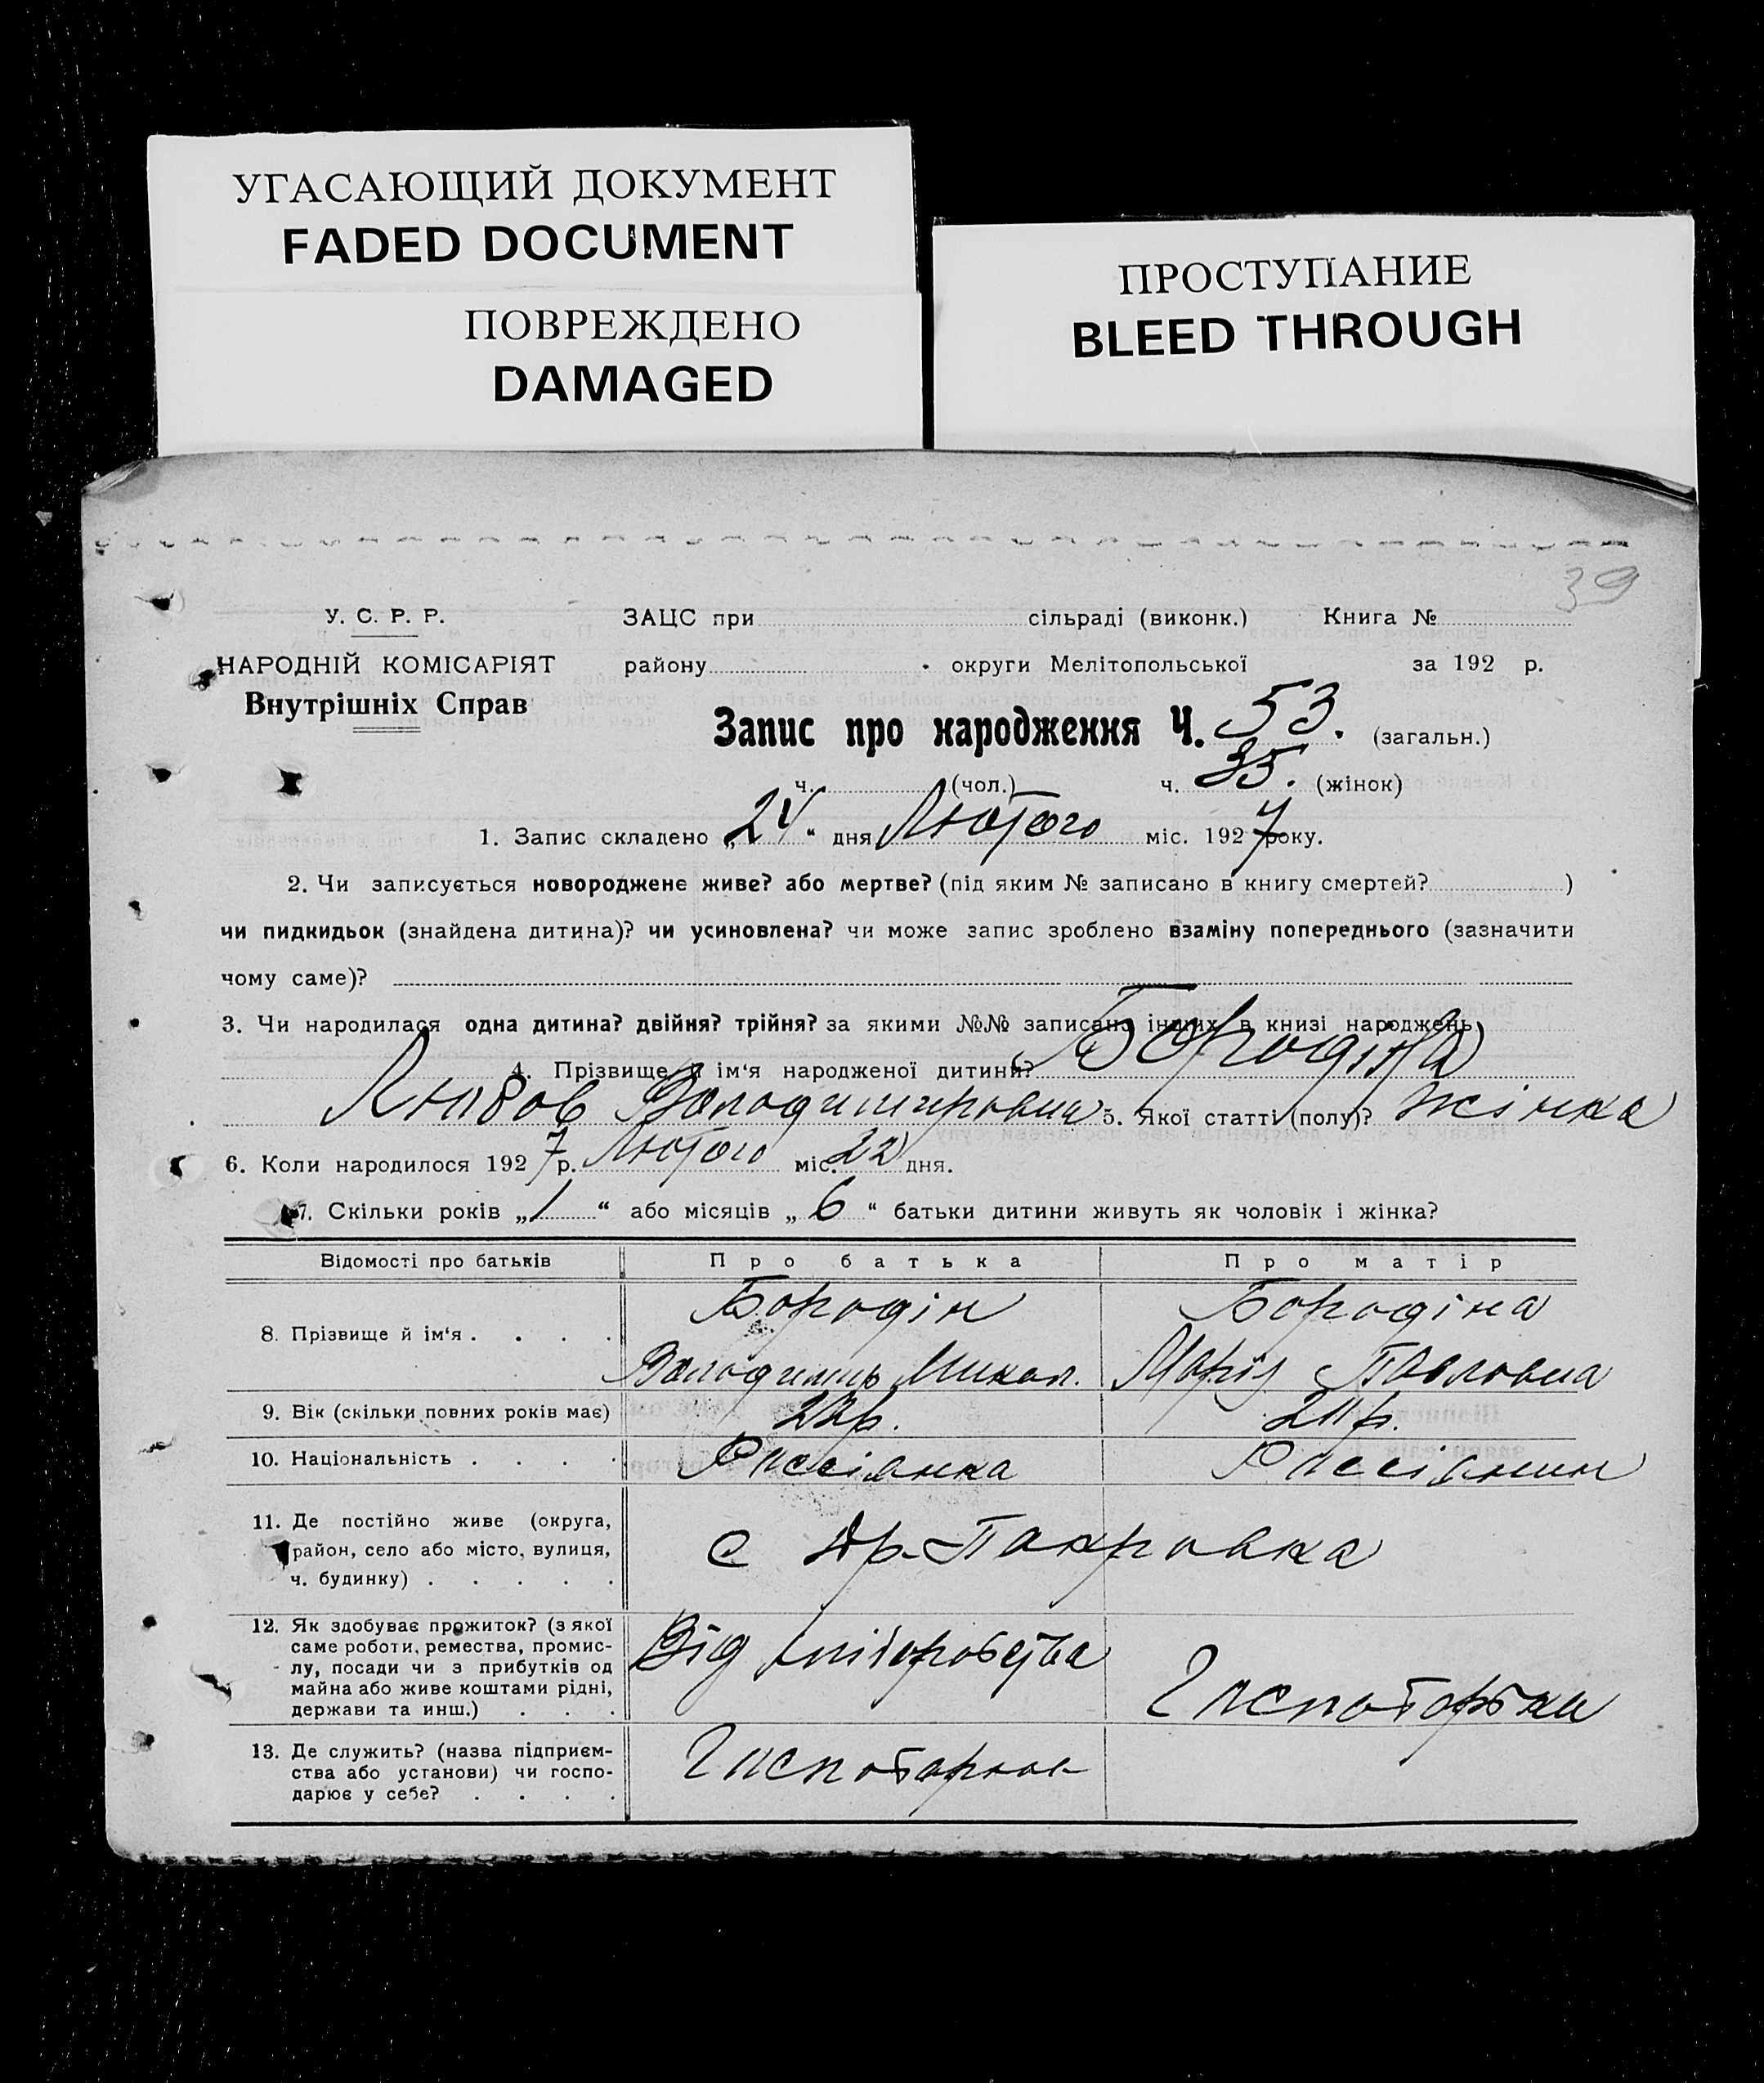 УГАСАЮЩИЙ ДОКУМЕНТ
FADED DOCUMENT
ПОВРЕЖДЕНО
DAMAGED
ПРОСТУПАНИЕ
BLEED THROUGH
39
У. С. Р. Р. ЗАЦС при сільраді (виконк.) Книга №
НАРОДНІЙ КОМІСАРІЯТ району округи Мелітопольської за 192 р.
Внутрішніх Справ
Запис про народження Ч. 53. (загальн.)
ч. (чол.) ч. 35. (жінок)
1. Запис складено „24“ дня Лютого міс. 1927 року.
2. Чи записується новороджене живе? або мертве? (під яким № записано в книгу смертей? )
чи пидкидьок (знайдена дитина)? чи усиновлена? чи може запис зроблено взаміну попереднього (зазначити
чому саме)?
3. Чи народилася одна дитина? двійня? трійня? за якими №№ записано інших в книзі народжень
4. Прізвище й ім‘я народженої дитини? Бородіна
Любов Володимировна 5. Якої статті (полу)? жінка
6. Коли народилося 1927 р. Лютого міс. 22 дня.
7. Скільки років „1“ або місяців „6“ батьки дитини живуть як чоловік і жінка?
Відомості про батьків Про батька Про матір
8. Прізвище й ім‘я . . . . Бородін Бородіна
Володимир Микол. Марія Павловна
9. Вік (скільки повних років має) 22р. 21р.
10. Національність . . . . Россіянка Россіянин
11. Де постійно живе (округа,
район, село або місто, вулиця,
ч. будинку) . . . . .
с -Покровка
12. Як здобуває прожиток? (з якої
саме роботи, ремества, промис-
лу, посади чи з прибутків од
майна або живе коштами рідні,
держави та инш.) . . .
Від хліборобства
Господарька
13. Де служить? (назва підприєм-
ства або установи) чи госпо-
дарює у себе? . . . .